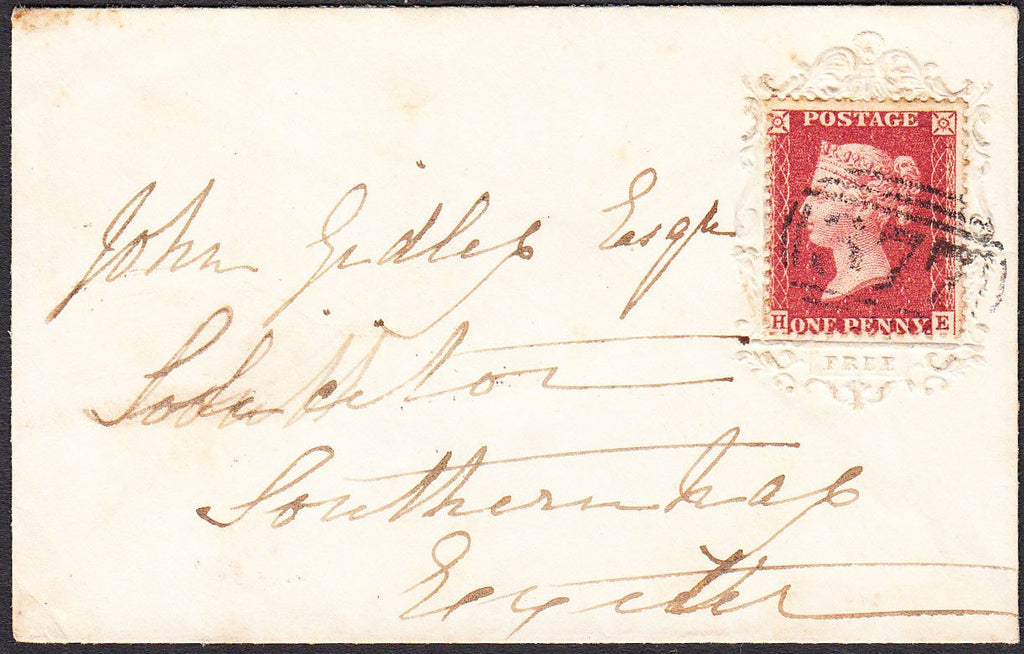 POSTAGE
H ONE PENNY E
FREE
John Gidley Esqr
Solicitor
Southernhay
Exeter